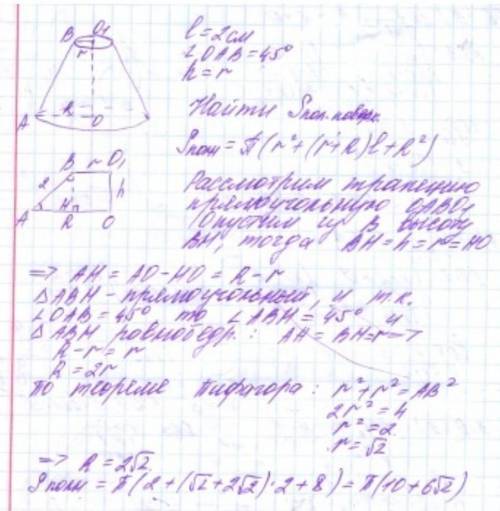 l = 2 см
∠OAB = 45°
h = r
Найти Sпол. поверх.
Sполн = π(r² + (r + R)l + R²)
B O₁
r
R
A O
B r O₁
2 h
A H R O
Рассмотрим трапецию
прямоугольную OABO₁
Опустим из B высоту
BH, тогда BH = h = r = HO
=> AH = AO - HO = R - r
△ABH - прямоугольный, и т.к.
∠OAB = 45° то ∠ABH = 45° и
△ABH равнобедр: AH = BH = r =>
R - r = r
R = 2r
По теореме Пифагора: r² + r² = AB²
2r² = 4
r² = 2
r = √2
=> R = 2√2
Sполн = π(2 + (√2 + 2√2)·2 + 8) = π(10 + 6√2)